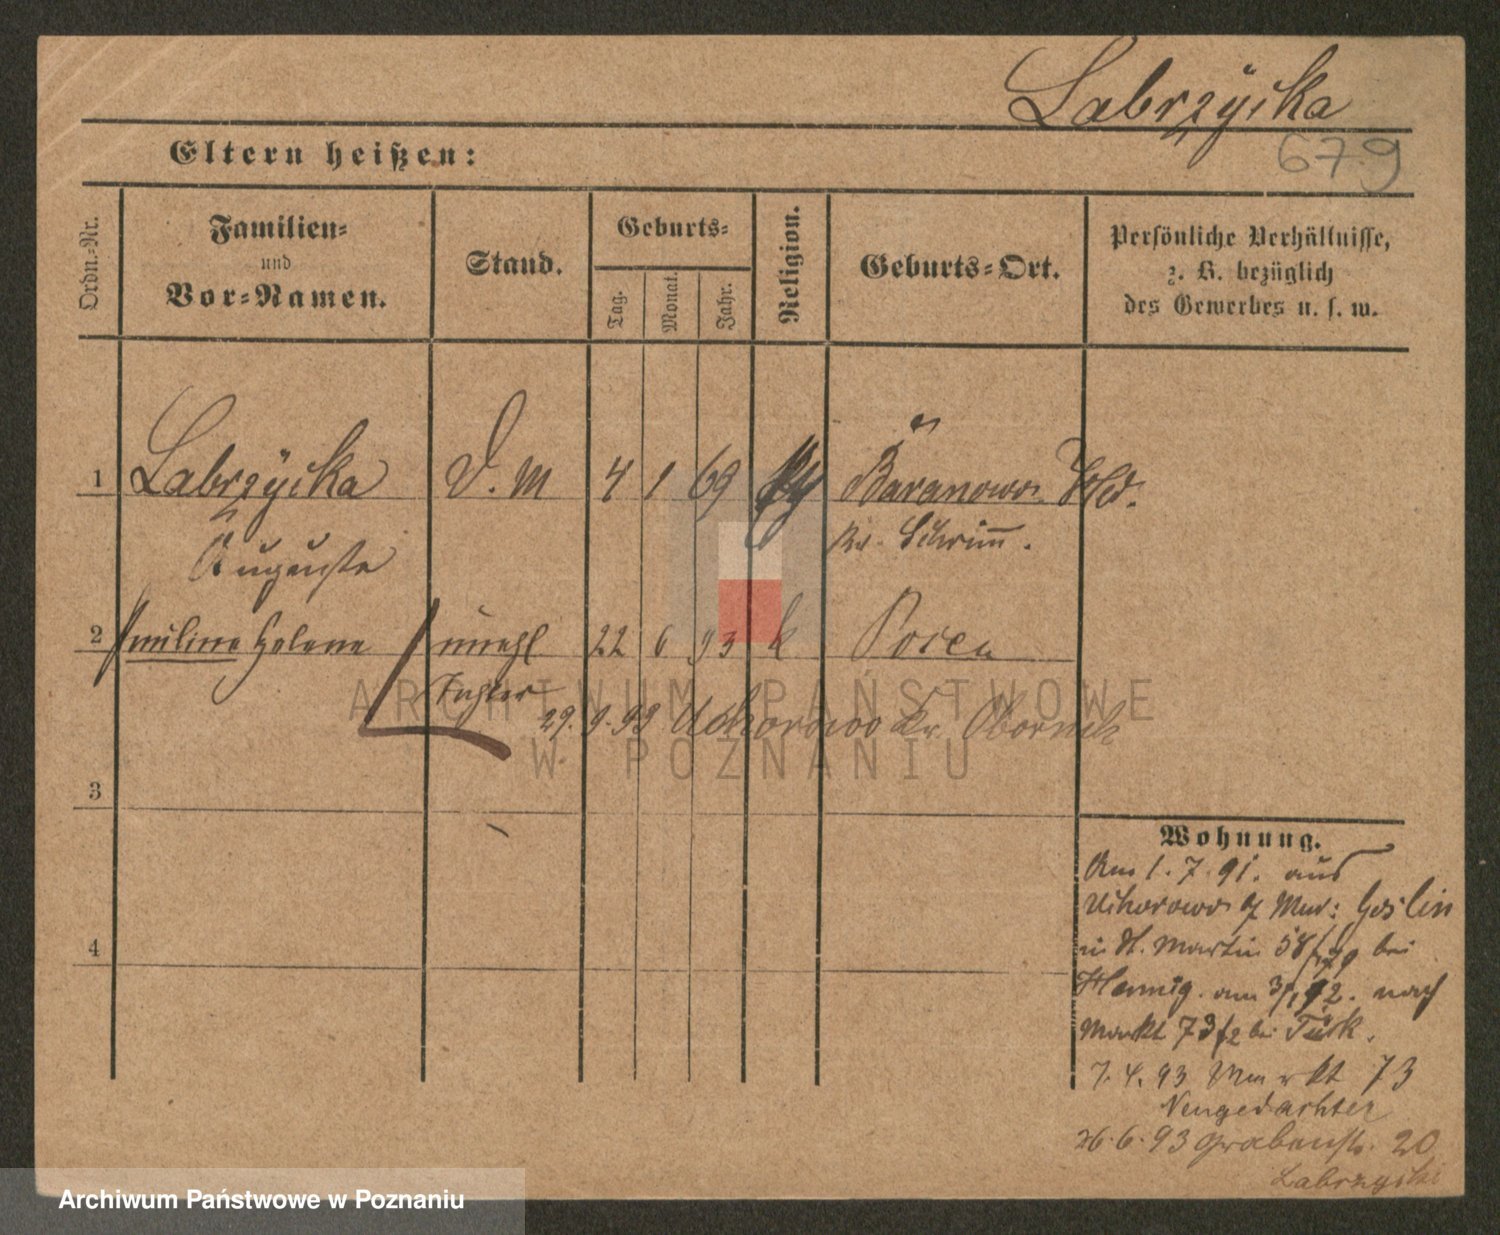 Labrzycka
679
Eltern heißen:
Ordn.-Nr.
Familien-
und
Vor-Namen.
Stand.
Geburts-
Tag.
Monat.
Jahr.
Religion.
Geburts-Ort.
Persönliche Verhältnisse,
z. B. bezüglich
des Gewerbes u. s. w.
1 Labrzycka D. M 4 1 69 Baranowo
Auguste Kr. Schrimm.
2 Helene unehl 22 6 93 k Posen
Tochter
29. 9. 99 Uchorowo Kr. Obornik
3
4
Wohnung.
Am 1. 7. 91. aus
Uchorowo Mur: Goslin
in St. Martin 58 bei
Hennig. am nach
Markt 73/2 bei Türk.
7. 4. 93 Markt 73
Neugedachter
26. 6. 93 Grabenstr. 20
Labrzycki
ARCHIWUM PAŃSTWOWE
W POZNANIU
Archiwum Państwowe w Poznaniu